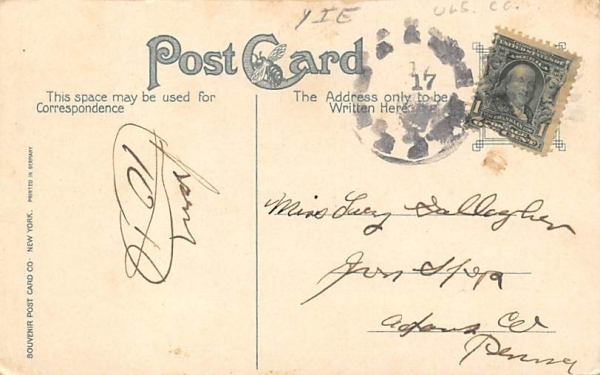 YIE
ULS. CO.
Post Card
17
UNITED STATES OF AMERICA
FRANKLIN
1 1
This space may be used for
Correspondence
The Address only to be
Written Here
SOUVENIR POST CARD CO. NEW YORK.
PRINTED IN GERMANY
From
Miss Lucy Gallagher
Iron Spgs
Adams Co
Penna